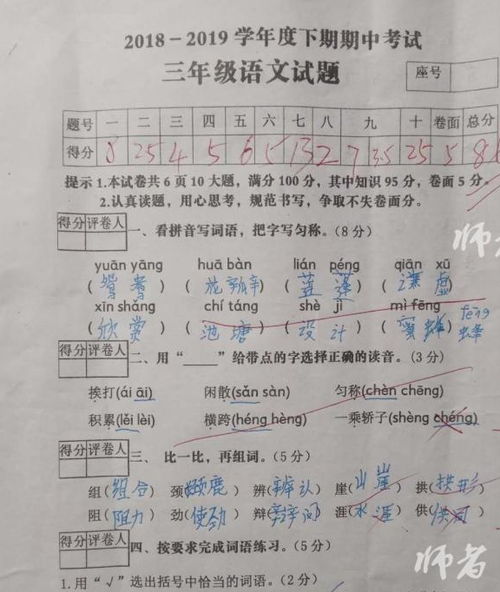 2018-2019学年度下期期中考试
三年级语文试题
座号
题号 一 二 三 四 五 六 七 八 九 十 卷面 总分
得分 8 25 4 5 6 5 13 2 7 3.5 25 5
提示1.本试卷共6页10大题，满分100分，其中知识95分，卷面5分。
2.认真读题，用心思考，规范书写，争取不失卷面分。
得分 评卷人
一、看拼音写词语，把字写匀称。(8分)
yuān yāng huā bàn lián péng qiān xū
(鸳鸯) (花瓣) (莲蓬) (谦虚)
xīn shǎng chí táng shè jì mì fēng
(欣赏) (池塘) (设计) (蜜蜂) fēng 蜂
得分 评卷人
二、用“____”给带点的字选择正确的读音。(3分)
挨打(ái āi) 闲散(sǎn sàn) 匀称(chèn chēng)
积累(lěi lèi) 横跨(héng hèng) 一乘轿子(shèng chéng)
得分 评卷人
三、比一比，再组词。(5分)
组(组合) 颈(颈鹿) 辨(辨认) 崖(山崖) 拱(拱形)
阻(阻力) 劲(使劲) 辩(辩问) 涯(水涯) 供(洪河)
得分 评卷人
四、按要求完成词语练习。(5分)
1.用“√”选出括号中恰当的词语。(2分)
师者
师者